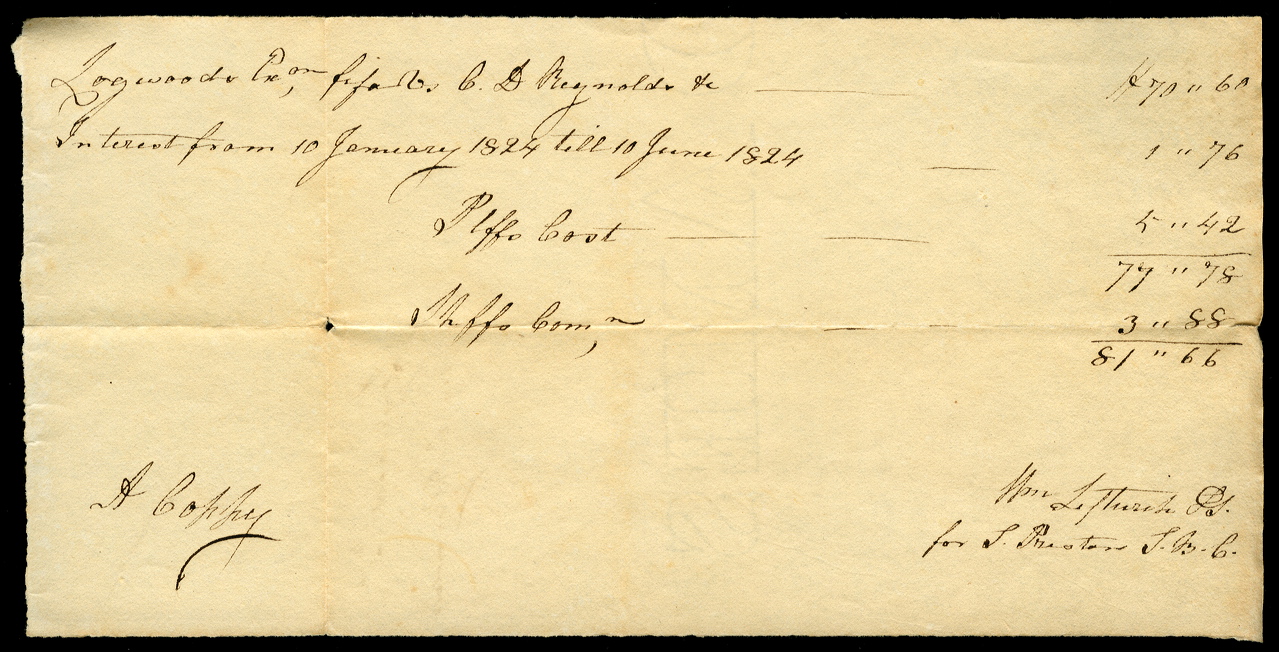 Logwoods Exor, fifa Vs C. D Reynolds &c $70 " 60
Interest from 10 January 1824 till 10 June 1824 1 " 76
Plffs Cost 5 " 42
77 " 78
Shffs Comn, 3 " 88
81 " 66
A Coppy
Wm Leftwich DS.
for S. Preston S. B. C.